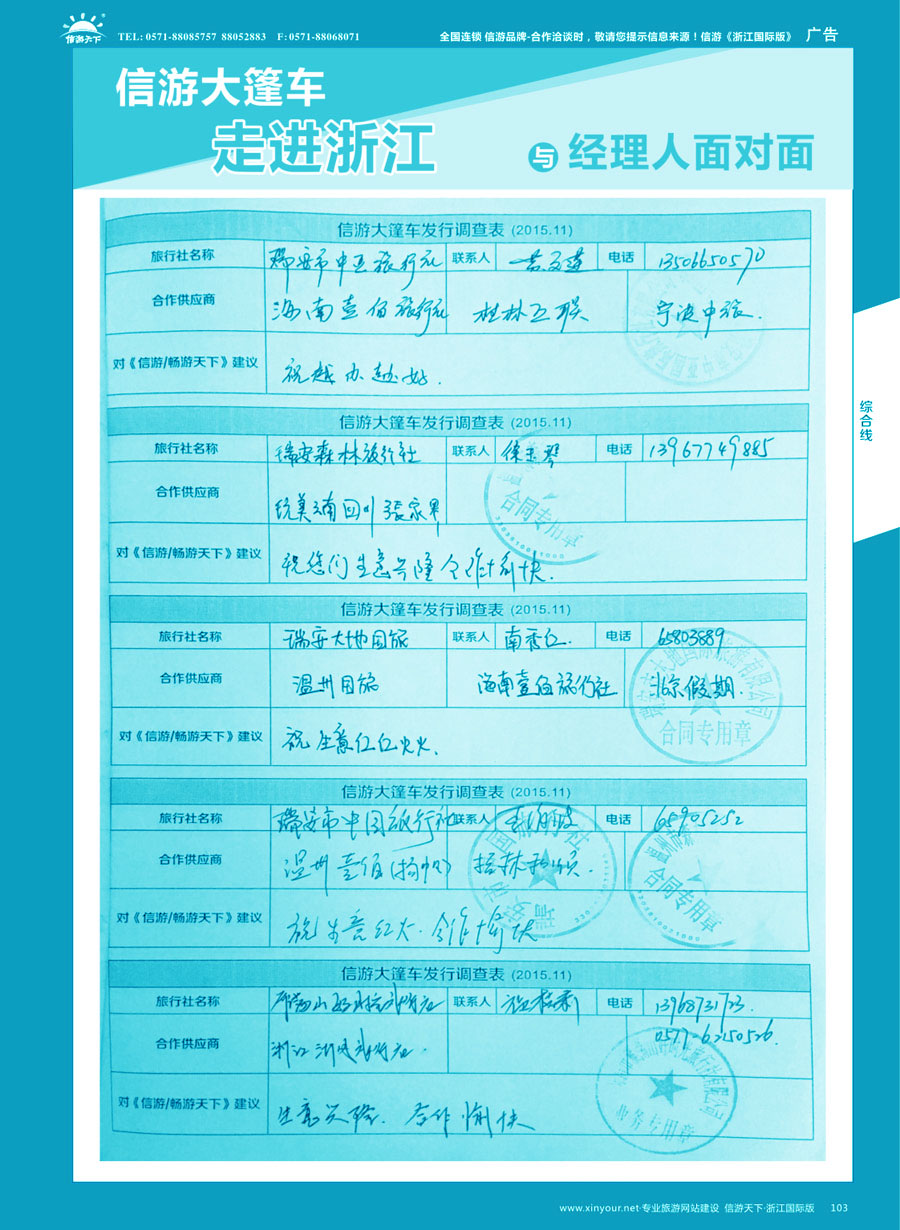 信游天下
TEL: 0571-88085757 88052883 F: 0571-88068071
全国连锁 信游品牌-合作洽谈时，敬请您提示信息来源！信游《浙江国际版》 广告
信游大篷车
走进浙江 与 经理人面对面
信游大篷车发行调查表 (2015.11)
旅行社名称 瑞安市中亚旅行社 联系人 电话 13506650570
合作供应商 海南壹佰旅行社 桂林五联 宁波中旅.
对《信游/畅游天下》建议 祝越办越好.
信游大篷车发行调查表 (2015.11)
旅行社名称 瑞安森林旅行社 联系人 电话 13967749885
合作供应商 张家界
合同专用章
对《信游/畅游天下》建议 祝您们生意兴隆 合作愉快.
信游大篷车发行调查表 (2015.11)
旅行社名称 瑞安大地国旅 联系人 南秀红. 电话 65803889
合作供应商 温州国旅 海南壹佰旅行社 北京假期.
合同专用章
对《信游/畅游天下》建议 祝生意红红火火.
信游大篷车发行调查表 (2015.11)
旅行社名称 瑞安市中国旅行社 联系人 电话 65905252
合作供应商 温州壹佰(扬帆)
合同专用章
对《信游/畅游天下》建议 祝生意红火. 合作愉快
信游大篷车发行调查表 (2015.11)
旅行社名称 联系人 电话 13968731723.
合作供应商 0577-62150526.
业务专用章
对《信游/畅游天下》建议 生意兴隆. 合作愉快
综合线
www.xinyour.net·专业旅游网站建设 信游天下·浙江国际版 103